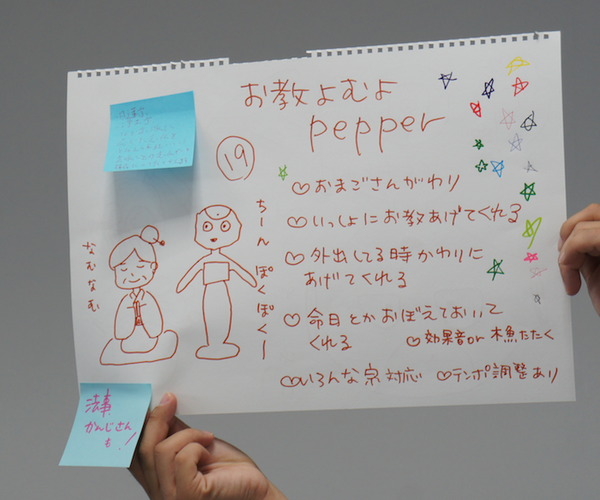 お教よむよ
pepper
19
♡おまごさんがわり
♡いっしょにお教あげてくれる
♡外出してる時かわりに
あげてくれる
♡命日とかおぼえておいて
くれる
♡効果音or木魚たたく
♡いろんな宗対応
♡テンポ調整あり
なむなむ
ちーん
ぽくぽくー
法事
かんじさん
も!